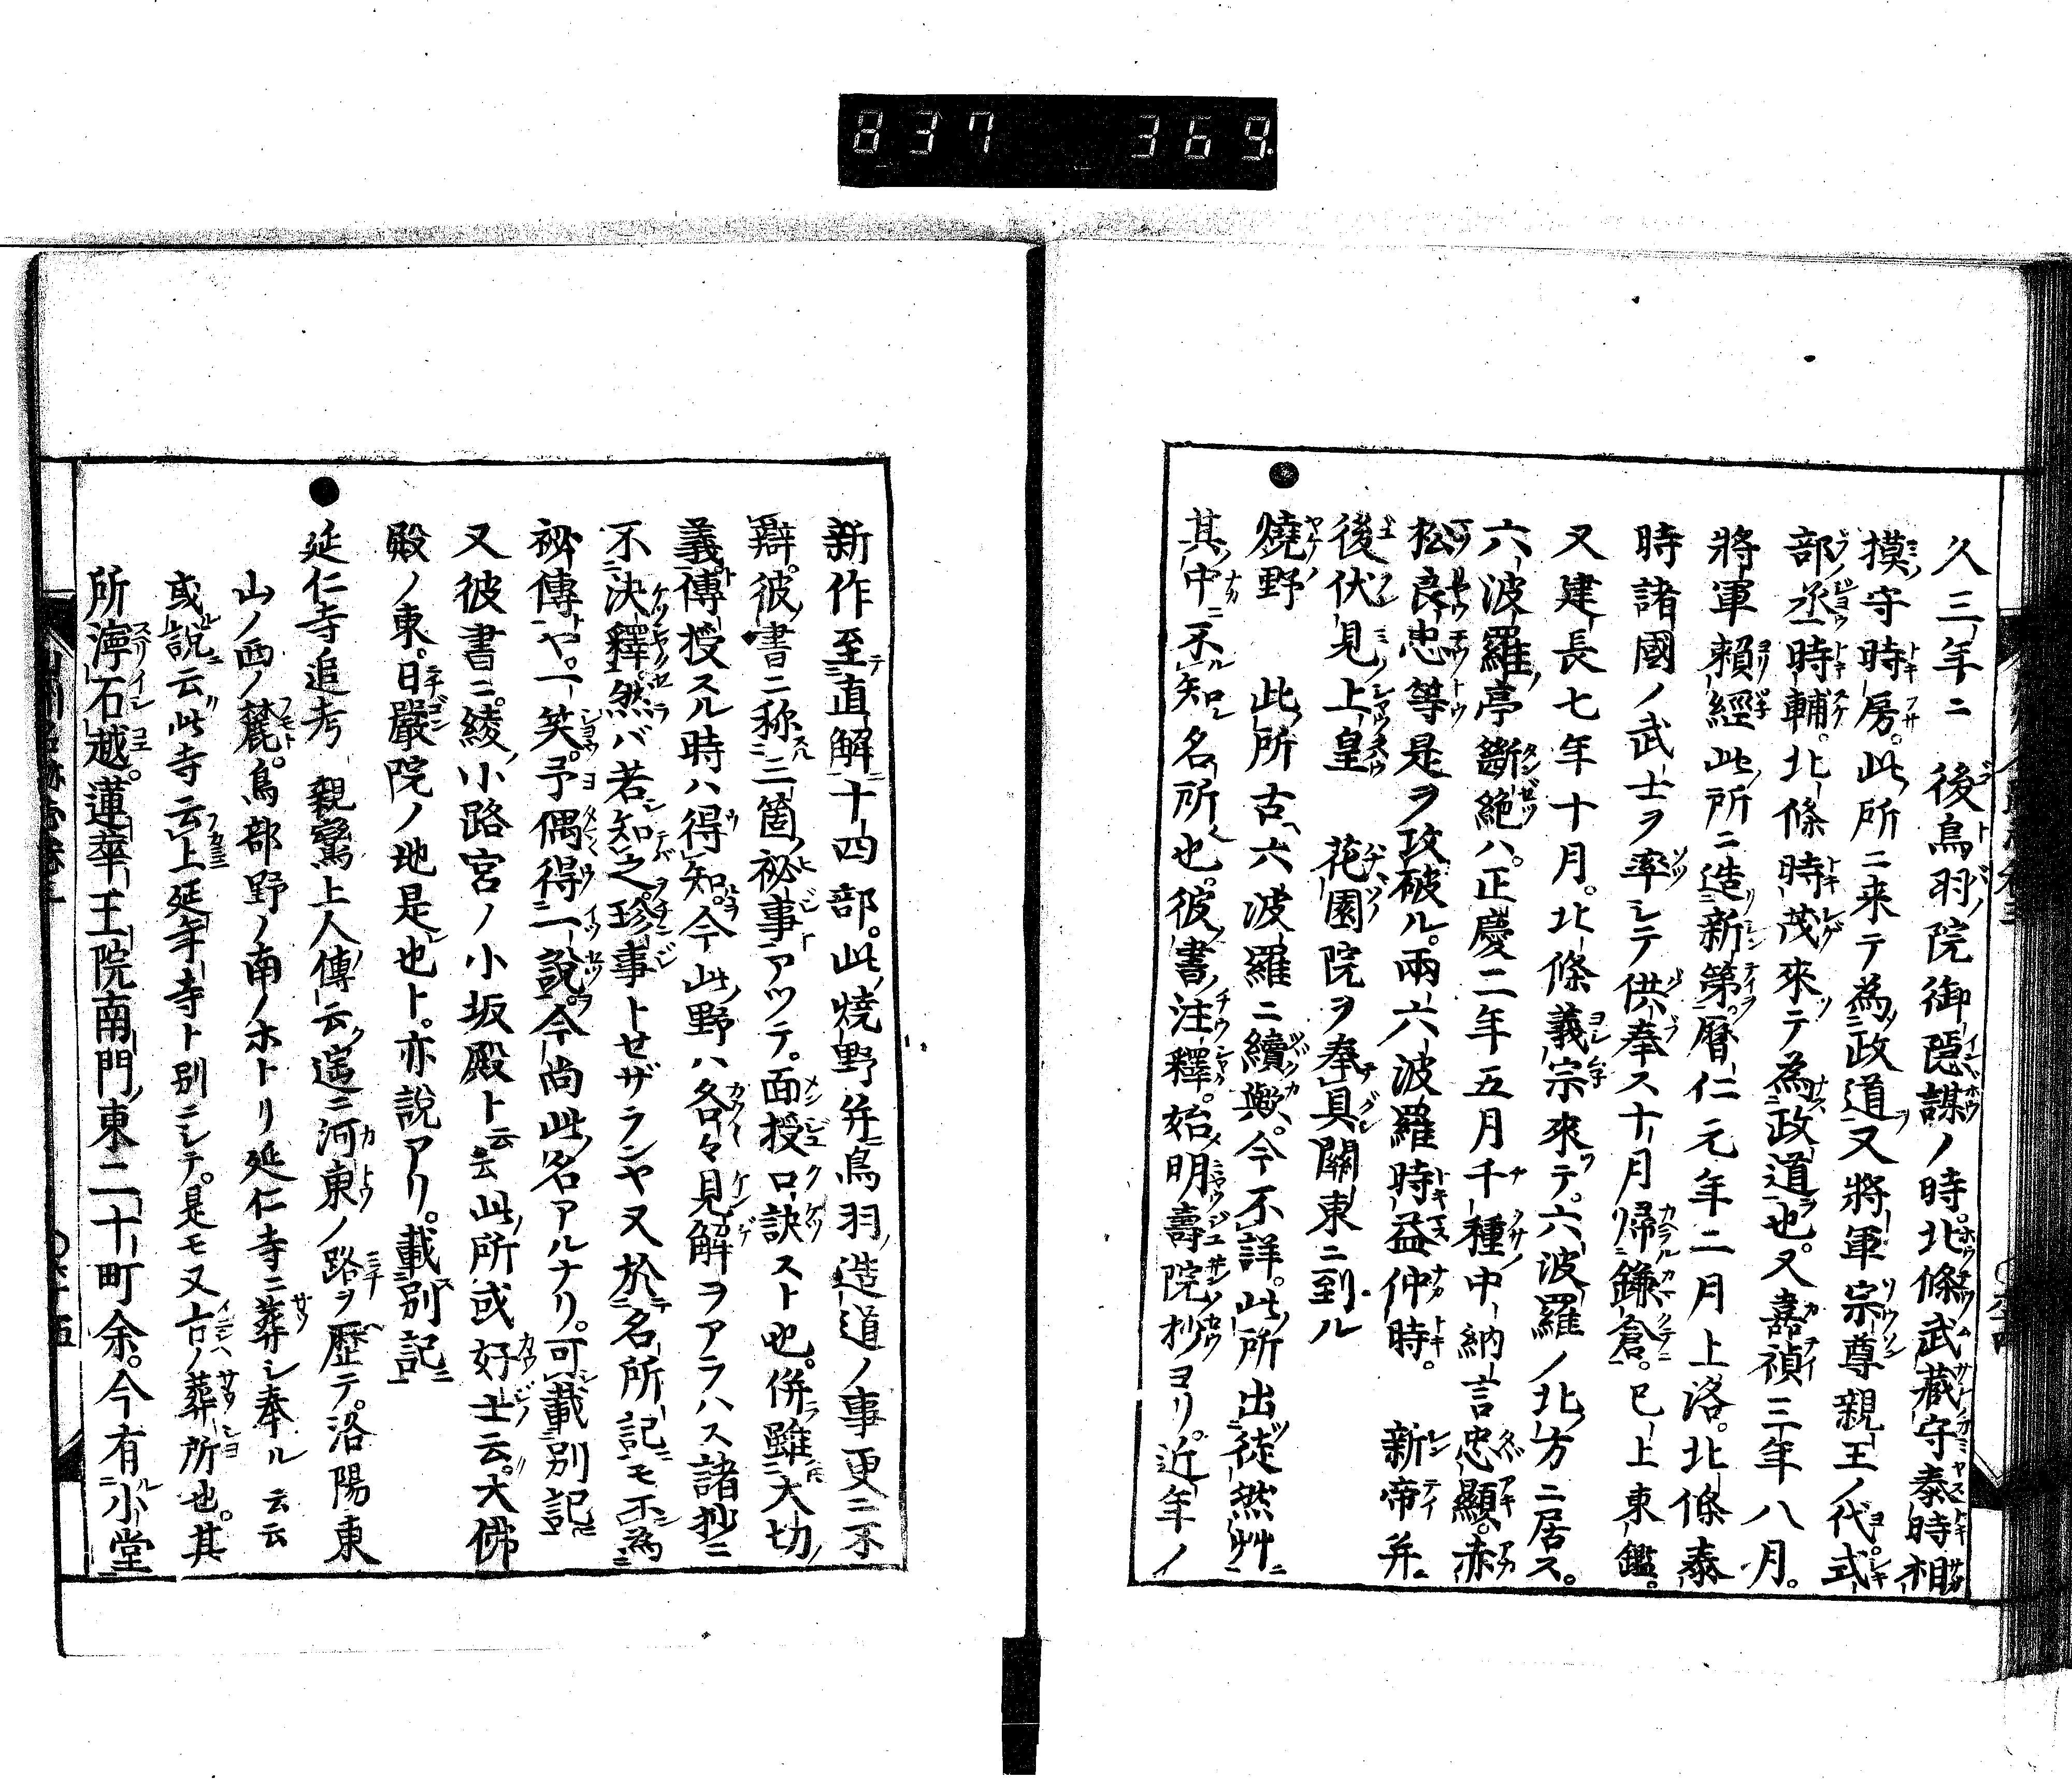 837 369
久三年ニ 後鳥羽院御隠謀ノ時。北條武藏守泰時相
摸守時房。此所ニ来テ為政道又將軍宗尊親王ノ代。式
部丞時輔。北條時茂來テ為政道也。又嘉禎三年八月。
將軍頼經此所ニ造新第。暦仁元年二月上洛。北條泰
時諸國ノ武士ヲ率シテ供奉ス十月歸鎌倉。已上東鑑。
又建長七年十月。北條義宗來テ。六波羅ノ北方ニ居ス。
六波羅亭斷絶ハ。正慶二年五月千種中納言忠顯。赤
松良忠等是ヲ攻破ル。兩六波羅時益仲時。 新帝并
後伏見上皇 花園院ヲ奉具關東ニ到ル
●燒野 此所古六波羅ニ續歟。今不詳。此所出徒然艸
其中ニ不知名所也。彼書注釋。始明壽院抄ヨリ。近年ノ
新作至直解十四部。此燒野并鳥羽造道ノ事更ニ不
辯。彼書ニ称三箇祕事アツテ。面授口訣スト也。併雖大切
義傳授スル時ハ得知。今此野ハ各々見解ヲアラハス諸抄ニ
不決釋。然バ若知之。珍事トセザランヤ又於名所記モ不為
祕傳ヤ。一笑。予偶得一説。今尚此名アルナリ。可載別記
又彼書ニ。綾小路宮ノ小坂殿ト云云此所或好士云。大佛
殿ノ東。日嚴院ノ地是也ト。亦説アリ。載別記
●延仁寺ノ追考 親鸞上人傳云遥ニ河東ノ路ヲ歴テ。洛陽東
山ノ西ノ麓。鳥部野ノ南ノホトリ延仁寺ニ葬シ奉ル 云云
或説云此寺云上延年寺ト別ニシテ。是モ又古ノ葬所也。其
所濘石越。蓮華王院南門東二十町余。今有小堂